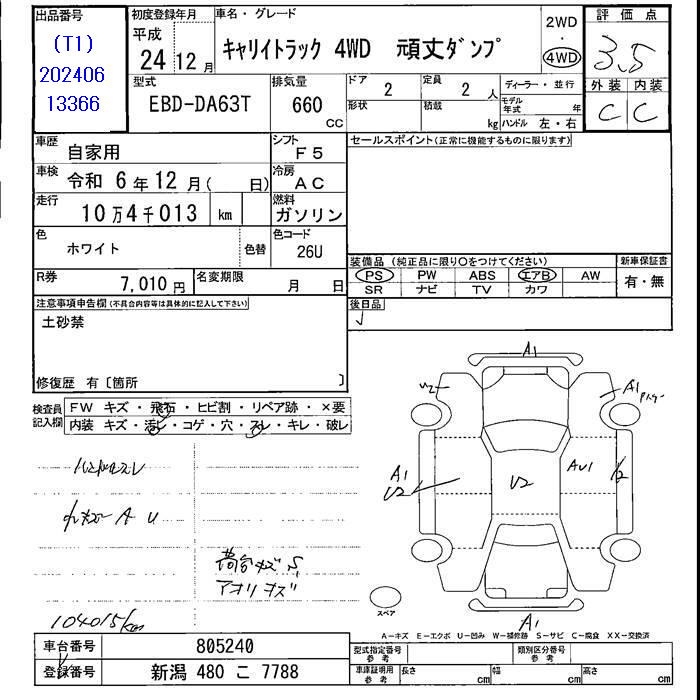 出品番号
(T1)
202406
13366
初度登録年月
平成
24 12 月
車名・グレード
キャリイトラック 4WD 頑丈ダンプ
2WD
・
4WD
評価点
3.5
外装 内装
C C
型式
EBD-DA63T
排気量
660
CC
ドア
2
形状
定員
2 人
積載
kg
ディーラー・並行
モデル年式 年
ハンドル 左・右
車歴
自家用
シフト
F5
車検
令和 6年12月( 日)
冷房
AC
走行
10万4千013 km
燃料
ガソリン
色
ホワイト
色替
色コード
26U
R券
7,010 円
名変期限
月 日
セールスポイント(正常に機能するものに限ります)
装備品 (純正品に限り○をつけてください)
PS PW ABS エアB AW
SR ナビ TV カワ
新車保証書
有・無
後日品
注意事項申告欄(不具合内容等は具体的に記入して下さい)
土砂禁
修復歴 有〔箇所 〕
検査員
記入欄
FW キズ・飛石・ヒビ割・リペア跡・×要
内装 キズ・汚レ・コゲ・穴・スレ・キレ・破レ
ハンドルスレ
A U
荷台キズ S
アオリキズ
104015km
A1
U2
A1
A1
U2
U2
AU1
A1
スペア
A-キズ E-エクボ U-凹み W-補修跡 S-サビ C-腐食 XX-交換済
車台番号
805240
登録番号
新潟 480 こ 7788
型式指定番号
参考
類別区分番号
参考
車庫証明用
参考
長さ cm
幅 cm
高さ cm